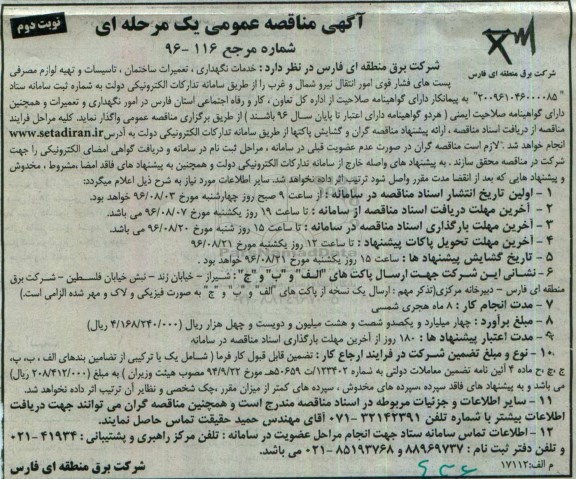 آگهی مناقصه عمومی یک مرحله ای
نوبت دوم
شماره مرجع ۱۱۶ -۹۶
شرکت برق منطقه ای فارس
شرکت برق منطقه ای فارس در نظر دارد : خدمات نگهداری ، تعمیرات ساختمان ، تاسیسات و تهیه لوازم مصرفی
پست های فشار قوی امور انتقال نیرو شمال و غرب را از طریق سامانه تدارکات الکترونیکی دولت به شماره ثبت سامانه ستاد
"۲۰۰۹۶۱۰۴۶۰۰۰۰۸۵" به پیمانکار دارای گواهینامه صلاحیت از اداره کل تعاون ، کار و رفاه اجتماعی استان فارس در امور نگهداری و تعمیرات و همچنین
دارای گواهینامه صلاحیت ایمنی ( هردو گواهینامه دارای اعتبار تا پایان سال ۹۶ باشند ) از طریق برگزاری مناقصه عمومی واگذار نماید. کلیه مراحل فرایند
مناقصه از دریافت اسناد مناقصه ، ارائه پیشنهاد مناقصه گران و گشایش پاکتها از طریق سامانه تدارکات الکترونیکی دولت به آدرس www.setadiran.ir
انجام خواهد شد .لازم است مناقصه گران در صورت عدم عضویت قبلی در سامانه ، مراحل ثبت نام در سامانه و دریافت گواهی امضای الکترونیکی را جهت
شرکت در مناقصه محقق سازند . به پیشنهاد های واصله خارج از سامانه تدارکات الکترونیکی دولت و همچنین به پیشنهاد های فاقد امضا، مشروط ، مخدوش
و پیشنهاد هایی که بعد از انقضا مدت مقرر واصل شود ترتیب اثر داده نخواهد شد. سایر اطلاعات مورد نیاز به شرح ذیل اعلام میگردد:
۱ - اولین تاریخ انتشار اسناد مناقصه در سامانه : از ساعت ۹ صبح روز چهارشنبه مورخ ۹۶/۰۸/۰۳ خواهد بود.
۲ - آخرین مهلت دریافت اسناد مناقصه از سامانه : تا ساعت ۱۹ روز یکشنبه مورخ ۹۶/۰۸/۰۷ می باشد.
۳ - آخرین مهلت بارگذاری اسناد مناقصه در سامانه : تا ساعت ۱۵ روز شنبه مورخ ۹۶/۰۸/۲۰ می باشد.
۴ - آخرین مهلت تحویل پاکات پیشنهاد : تا ساعت ۱۲ روز یکشنبه مورخ ۹۶/۰۸/۲۱
۵ - تاریخ گشایش پیشنهاد ها : ساعت ۱۵ روز یکشنبه مورخ ۹۶/۰۸/۲۱ خواهد بود .
۶ - نشانی این شرکت جهت ارسال پاکت های "الف" و "ب" و "ج" : شیراز - خیابان زند - نبش خیابان فلسطین - شرکت برق
منطقه ای فارس - دبیرخانه مرکزی(تذکر مهم : ارسال یک نسخه از پاکت های "الف" و "ب" و "ج" به صورت فیزیکی و لاک و مهر شده الزامی است.)
۷ - مدت انجام کار : ۸ ماه هجری شمسی
۸ - مبلغ برآورد : چهار میلیارد و یکصدو شصت و هشت میلیون و دویست و چهل هزار ریال (۴/۱۶۸/۲۴۰/۰۰۰ ریال)
۹ - مدت اعتبار پیشنهاد ها : ۱۸۰ روز از آخرین مهلت بارگذاری اسناد مناقصه در سامانه
۱۰ - نوع و مبلغ تضمین شرکت در فرایند ارجاع کار : تضمین قابل قبول کار فرما ( شامل یک یا ترکیبی از تضامین بندهای الف ، ب، پ،
ج ،چ ،ح ماده ۴ آئین نامه تضمین معاملات دولتی به شماره ۱۲۳۴۰۲/ت۵۰۶۵۹هـ مورخ ۹۴/۹/۲۲ مصوب هیئت وزیران ) به مبلغ (۲۰۸/۴۱۲/۰۰۰ ریال)
می باشد و به پیشنهاد های فاقد سپرده ،سپرده های مخدوش ، سپرده های کمتر از میزان مقرر ،چک شخصی و نظایر آن ترتیب اثر داده نخواهد شد.
۱۱ - سایر اطلاعات و جزئیات مربوطه در اسناد مناقصه مندرج است و همچنین مناقصه گران می توانند جهت دریافت
اطلاعات بیشتر با شماره تلفن ۳۲۱۴۲۳۹۱-۰۷۱ آقای مهندس حمید حقیقت تماس حاصل نمایند.
۱۲ - اطلاعات تماس سامانه ستاد جهت انجام مراحل عضویت در سامانه : تلفن مرکز راهبری و پشتیبانی : ۴۱۹۳۴-۰۲۱
و تلفن دفتر ثبت نام : ۸۸۹۶۹۷۳۷ و ۸۵۱۹۳۷۶۸-۰۲۱ می باشد.
م الف:۱۷۱۱۲
شرکت برق منطقه ای فارس